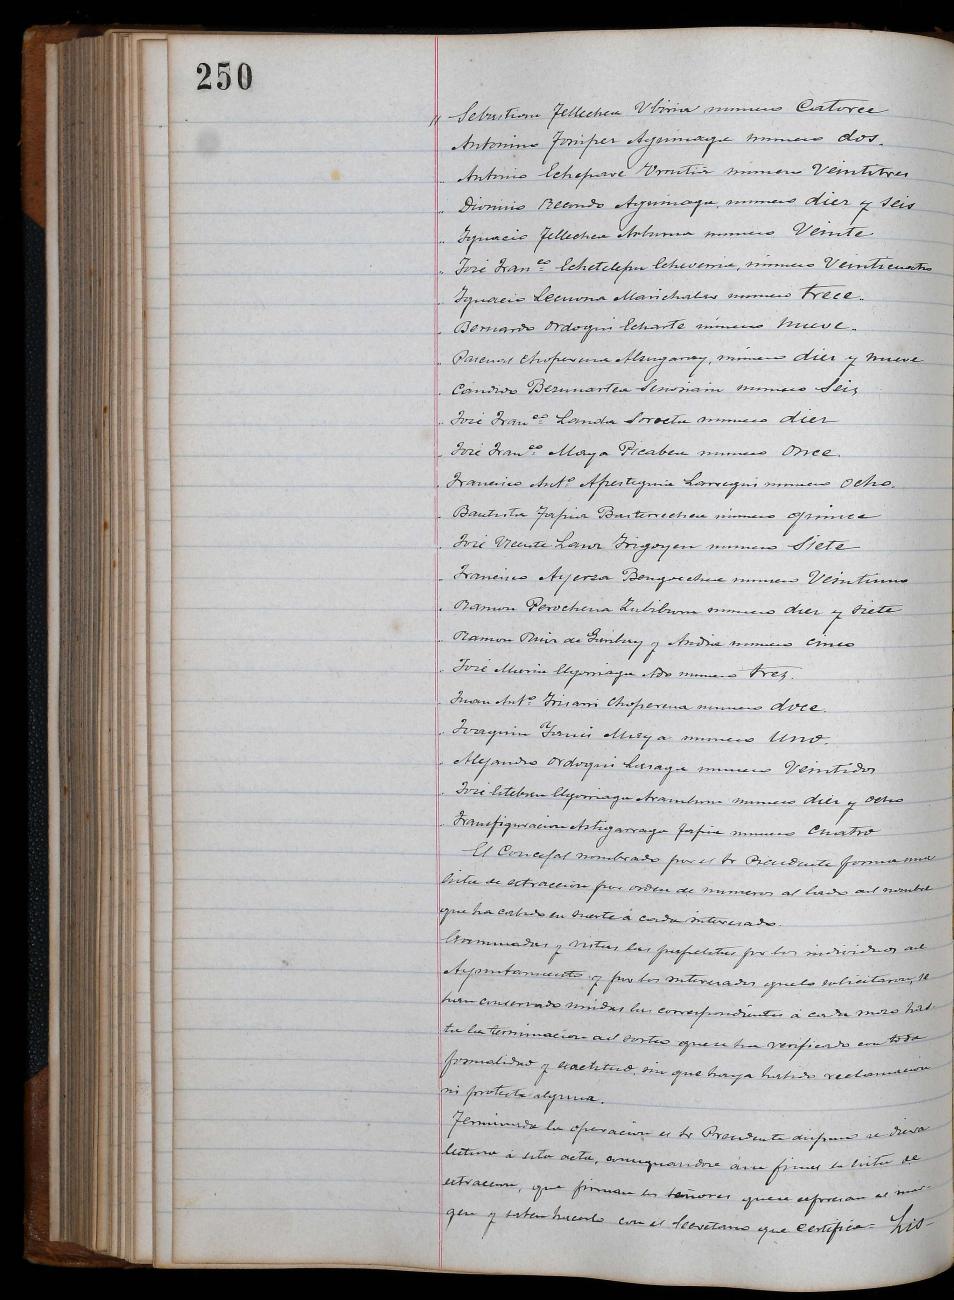 250
" Sebastian Tellechea Ubiria numero Catorce
" Antonino Juniper Aguinaga numero dos.
" Antonio Echepare Urrutia numero Veintitres
" Dionisio Recondo Aguinaga, numero diez y seis
" Ignacio Tellechea numero Veinte
" José Fran.co Echeverria, número Veinticuatro
" Ignacio Lecuona Marichalar numero trece.
" Bernardo Ordoqui Echarte número nueve.
" Pascual Choperena número diez y nueve
" Cándido numero Seis
" José Fran.co Landa Soroeta numero diez
" José Fran.co Maya Picabea numero Once.
" Francisco Ant.o Apesteguia Larregui numero Ocho.
" Bautista Tapia Basterrechea número quince
" José Vicente Lanz Irigoyen numero Siete
" Francisco Ayerza Bengoechea numero Veintiuno
" Ramon Perochena Zubiburu numero diez y siete
" Ramon Ruiz de y Andia numero Cinco
" José Maria Elgorriaga numero tres.
" Juan Ant.o Irisarri Choperena numero doce.
" Joaquin Maya numero Uno.
" Alejandro Ordoqui numero Veintidos
" José Esteban Elgorriaga Aramburu numero diez y ocho
" Transfiguracion Astigarraga Tapia numero Cuatro
El Concejal nombrado por el Sr Presidente forma una
lista de extraccion por orden de numeros al lado del nombre
que ha cabido en suerte á cada interesado.
Examinadas y vistas las papeletas por los individuos del
Ayuntamiento y por los interesados que lo solicitaron, se
han conservado unidas las correspondientes á cada mozo has-
ta la terminacion del sorteo que se ha verificado con toda
formalidad y exactitud, sin que haya habido reclamacion
ni protesta alguna.
Terminada la operacion el Sr Presidente dispuso se diera
lectura á esta acta, consignandose á su final la lista de
extraccion, que firman los señores que se expresan al mar-
gen y saben hacerlo con el Secretario que certifica- Lis-